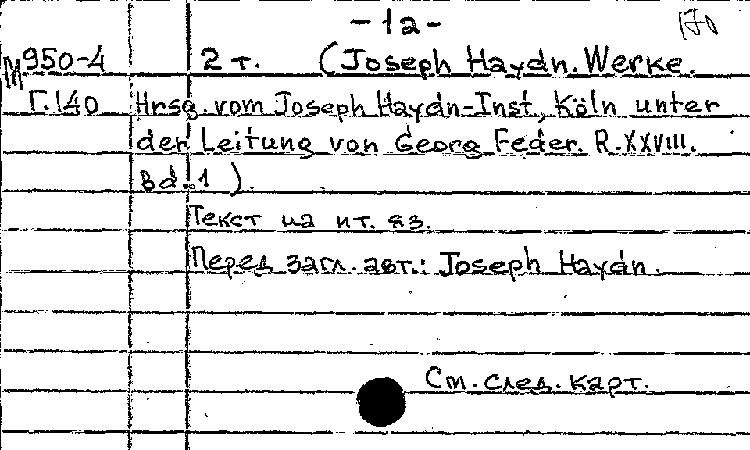 -1а-
М950-4 2 т. (Joseph Haydn. Werke.
Г.140 Hrsg. vom Joseph Haydn-Inst., Köln unter
der Leitung von Georg Feder. R.XXVIII.
Bd.1).
Текст на ит. яз.
Перед загл. авт.: Joseph Haydn.
См. след. карт.